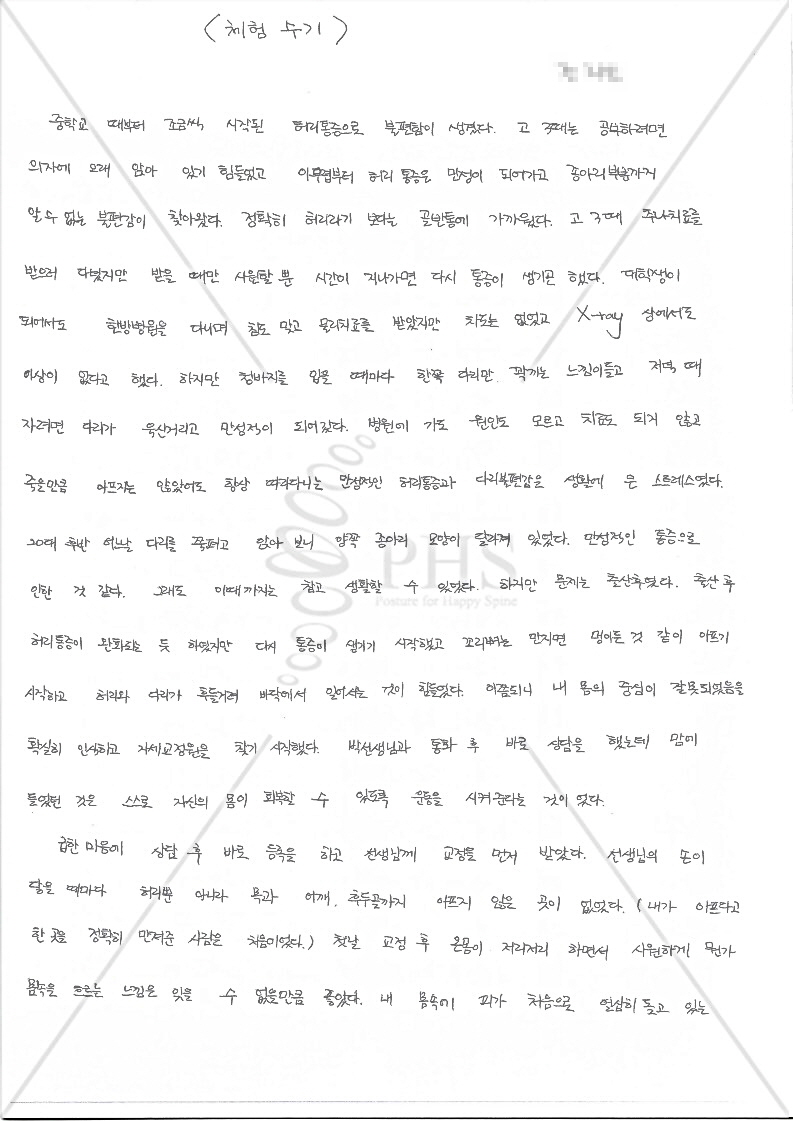 (체험 수기)
중학교 때부터 조금씩 시작된 허리통증으로 불편함이 생겼다. 고 3때는 공부하려면
의자에 오래 앉아 있기 힘들었고 아무렴부터 허리 통증은 만성이 되어가고 종아리부분까지
알 수 없는 불편감이 찾아왔다. 정확히 허리라기 보다는 골반통에 가까웠다. 고 3때 추나치료를
받으러 다녔지만 받을 때만 시원할 뿐 시간이 지나가면 다시 통증이 생기곤 했다. 대학생이
되어서도 한방병원을 다니며 침도 맞고 물리치료를 받았지만 차도는 없었고 X-ray 상에서도
이상이 없다고 했다. 하지만 청바지를 입을 때마다 한쪽 다리만 꽉끼는 느낌이들고 저녁 때
자려면 다리가 욱신거리고 만성적이 되어갔다. 병원에 가도 원인도 모르고 치료도 되지 않고
죽을만큼 아프지는 않았어도 항상 따라다니는 만성적인 허리통증과 다리불편감은 생활에 큰 스트레스였다.
20대 후반 어느날 다리를 쭉펴고 앉아 보니 양쪽 종아리 모양이 달라져 있었다. 만성적인 통증으로
인한 것 같다. 그래도 이때까지는 참고 생활할 수 있었다. 하지만 문제는 출산후였다. 출산 후
허리통증이 완화되는 듯 하였지만 다시 통증이 생기기 시작했고 꼬리뼈는 만지면 멍이든 것 같이 아프기
시작하고 허리와 다리가 후들거려 바닥에서 일어서는 것이 힘들었다. 이쯤되니 내 몸의 중심이 잘못되었음을
확실히 인식하고 자세교정원을 찾기 시작했다. 박선생님과 통화 후 바로 상담을 했는데 맘에
들었던 것은 스스로 자신의 몸이 회복할 수 있도록 운동을 시켜준다는 것이 었다.
급한 마음에 상담 후 바로 등록을 하고 선생님께 교정을 먼저 받았다. 선생님의 손이
닿을 때마다 허리뿐 아니라 목과 어깨, 후두골까지 아프지 않은 곳이 없었다. (내가 아프다고
한 곳을 정확히 만져준 사람은 처음이었다.) 첫날 교정 후 온몸이 저리저리 하면서 시원하게 뭔가
몸속을 흐르는 느낌은 잊을 수 없을만큼 좋았다. 내 몸속에 피가 처음으로 열심히 돌고 있는
PHS
Posture for Happy Spine